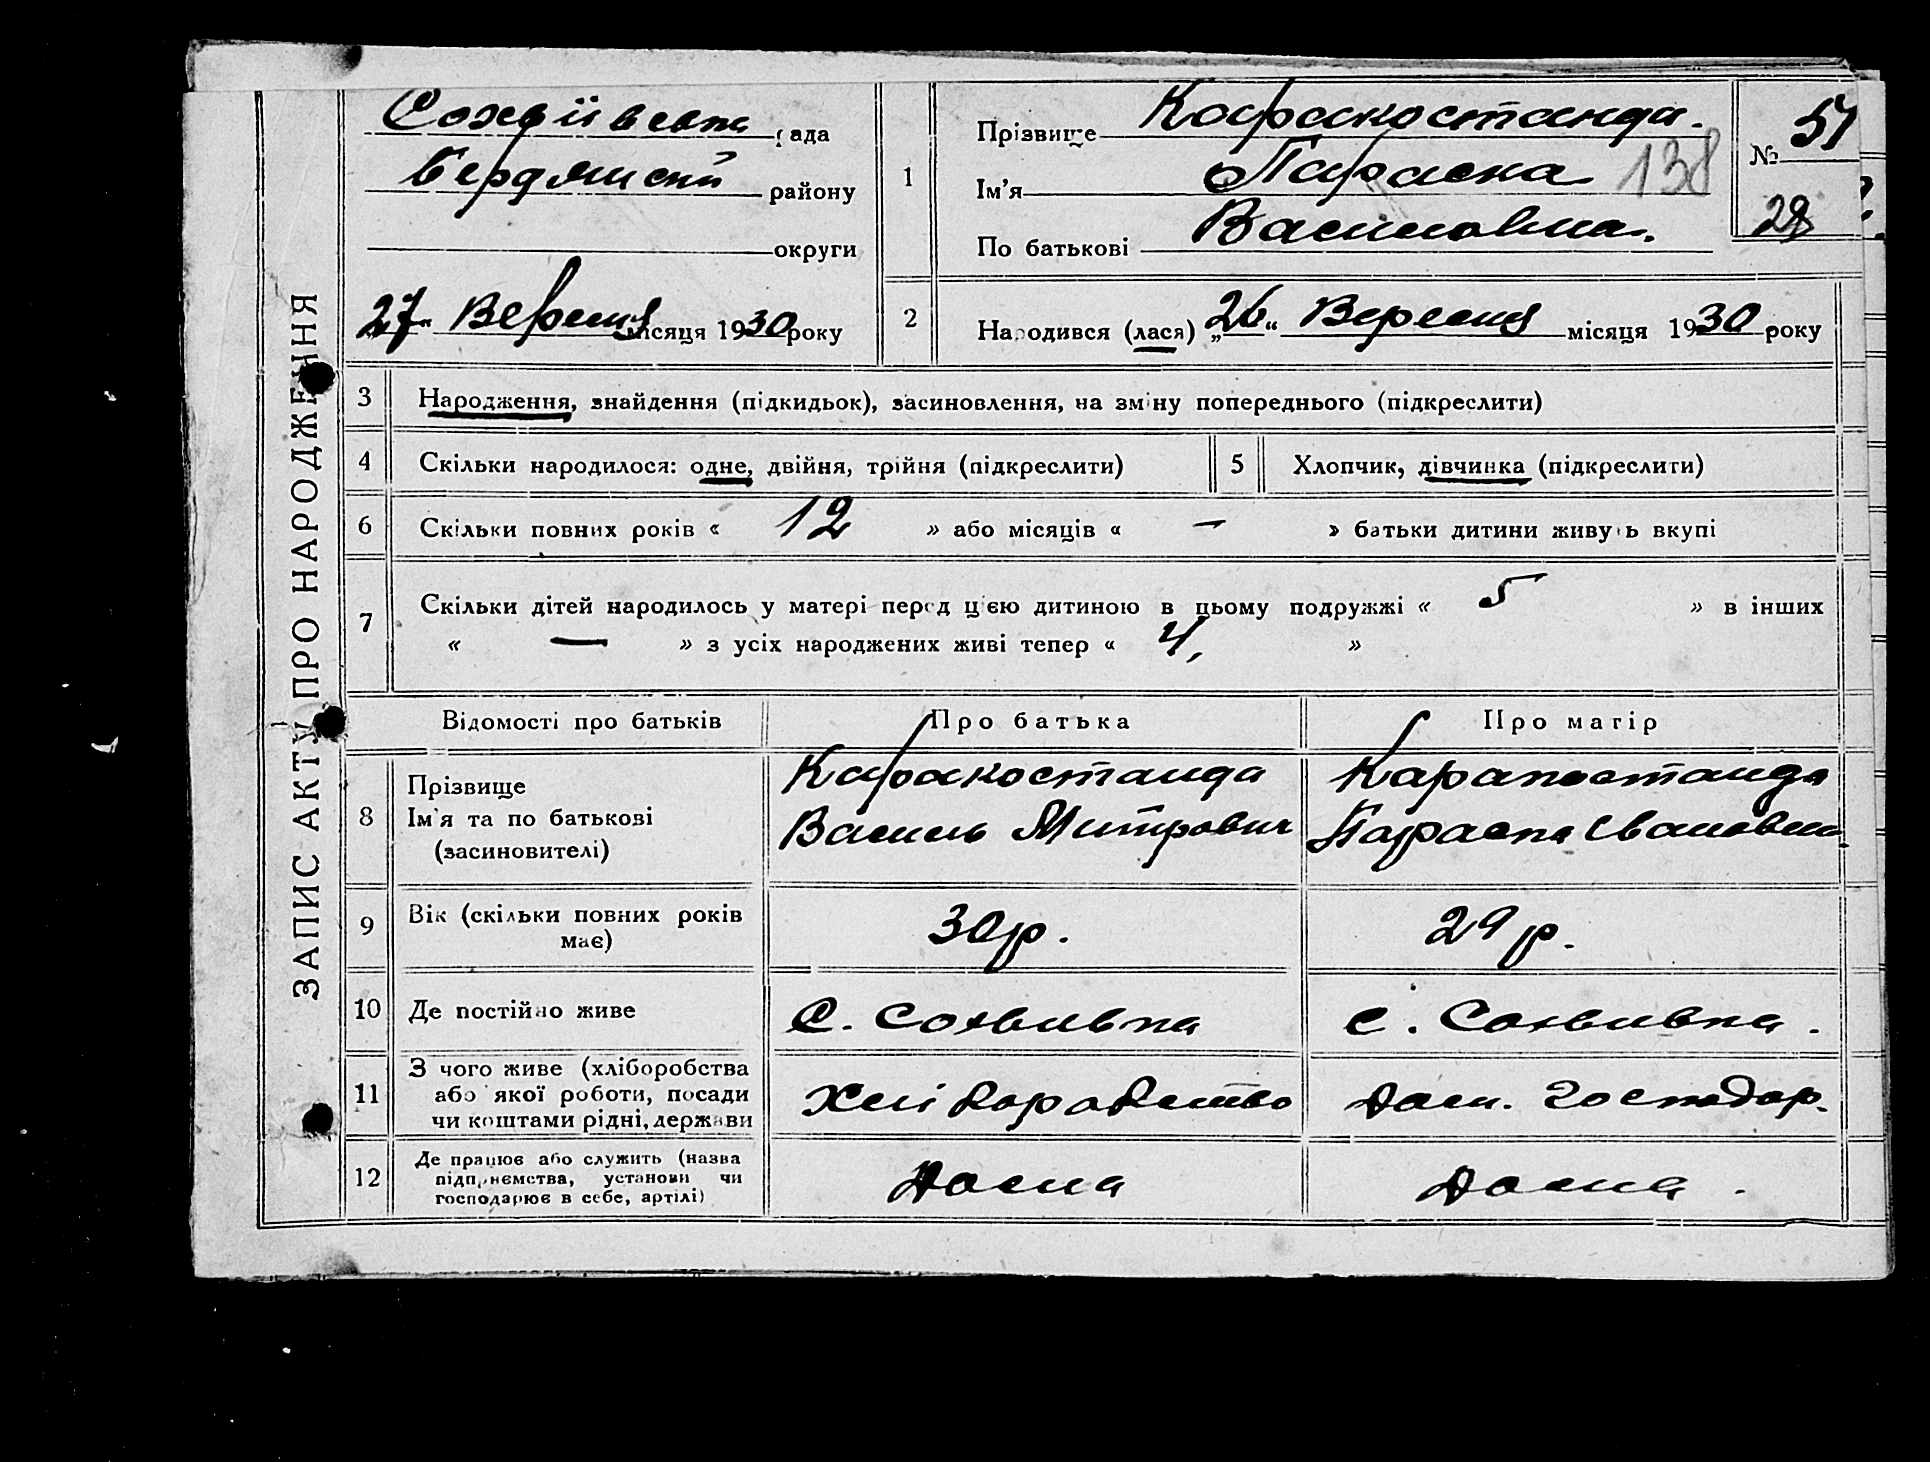 ЗАПИС АКТУ ПРО НАРОДЖЕННЯ
Сохвіївська рада
Бердянський району
округи
27 Вересня місяця 1930 року
1
Прізвище Каракостанди.
Ім'я Параска 138
По батькові Василовна.
№ 51
28
2
Народився (лася) „26“ Вересня місяця 1930 року
3 Народження, знайдення (підкидьок), засиновлення, на зміну попереднього (підкреслити)
4 Скільки народилося: одне, двійня, трійня (підкреслити)
5 Хлопчик, дівчинка (підкреслити)
6 Скільки повних років « 12 » або місяців « — » батьки дитини живуть вкупі
7 Скільки дітей народилось у матері перед цією дитиною в цьому подружжі « 5 » в інших
« — » з усіх народжених живі тепер « 4, »
Відомості про батьків Про батька Про матір
8 Прізвище
Ім'я та по батькові
(засиновителі)
Каракостанда
Василь Митрович
Каракостанда
Параска Івановна
9 Вік (скільки повних років
має)
30 р. 29 р.
10 Де постійно живе С. Сохвивка с. Сохвивка.
11 З чого живе (хліборобства
або якої роботи, посади
чи коштами рідні, держави
Хліборобство Дом. господар.
12 Де працює або служить (назва
підприємства, установи чи
господарює в себе, артілі)
Дома Дома.